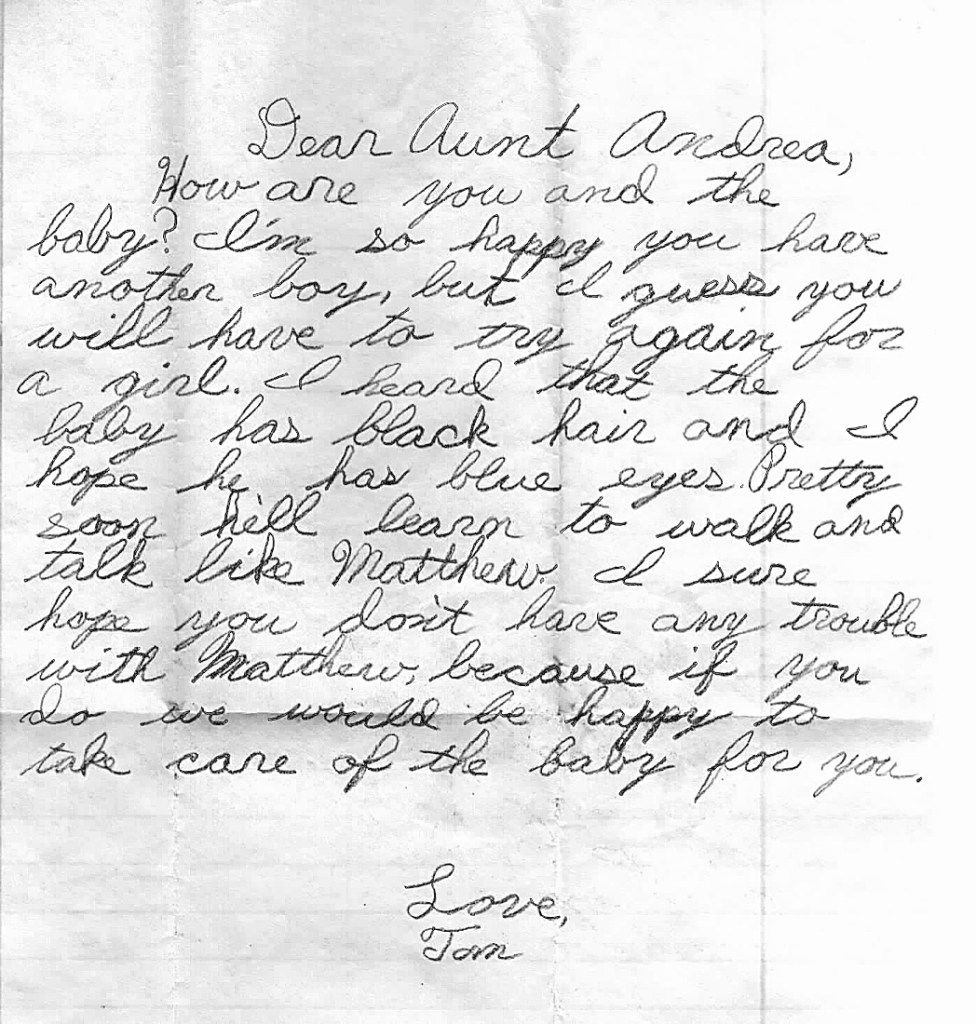 Dear Aunt Andrea,
How are you and the
baby? I'm so happy you have
another boy, but I guess you
will have to try again for
a girl. I heard that the
baby has black hair and I
hope he has blue eyes. Pretty
soon he'll learn to walk and
talk like Matthew. I sure
hope you don't have any trouble
with Matthew, because if you
do we would be happy to
take care of the baby for you.
Love,
Tom